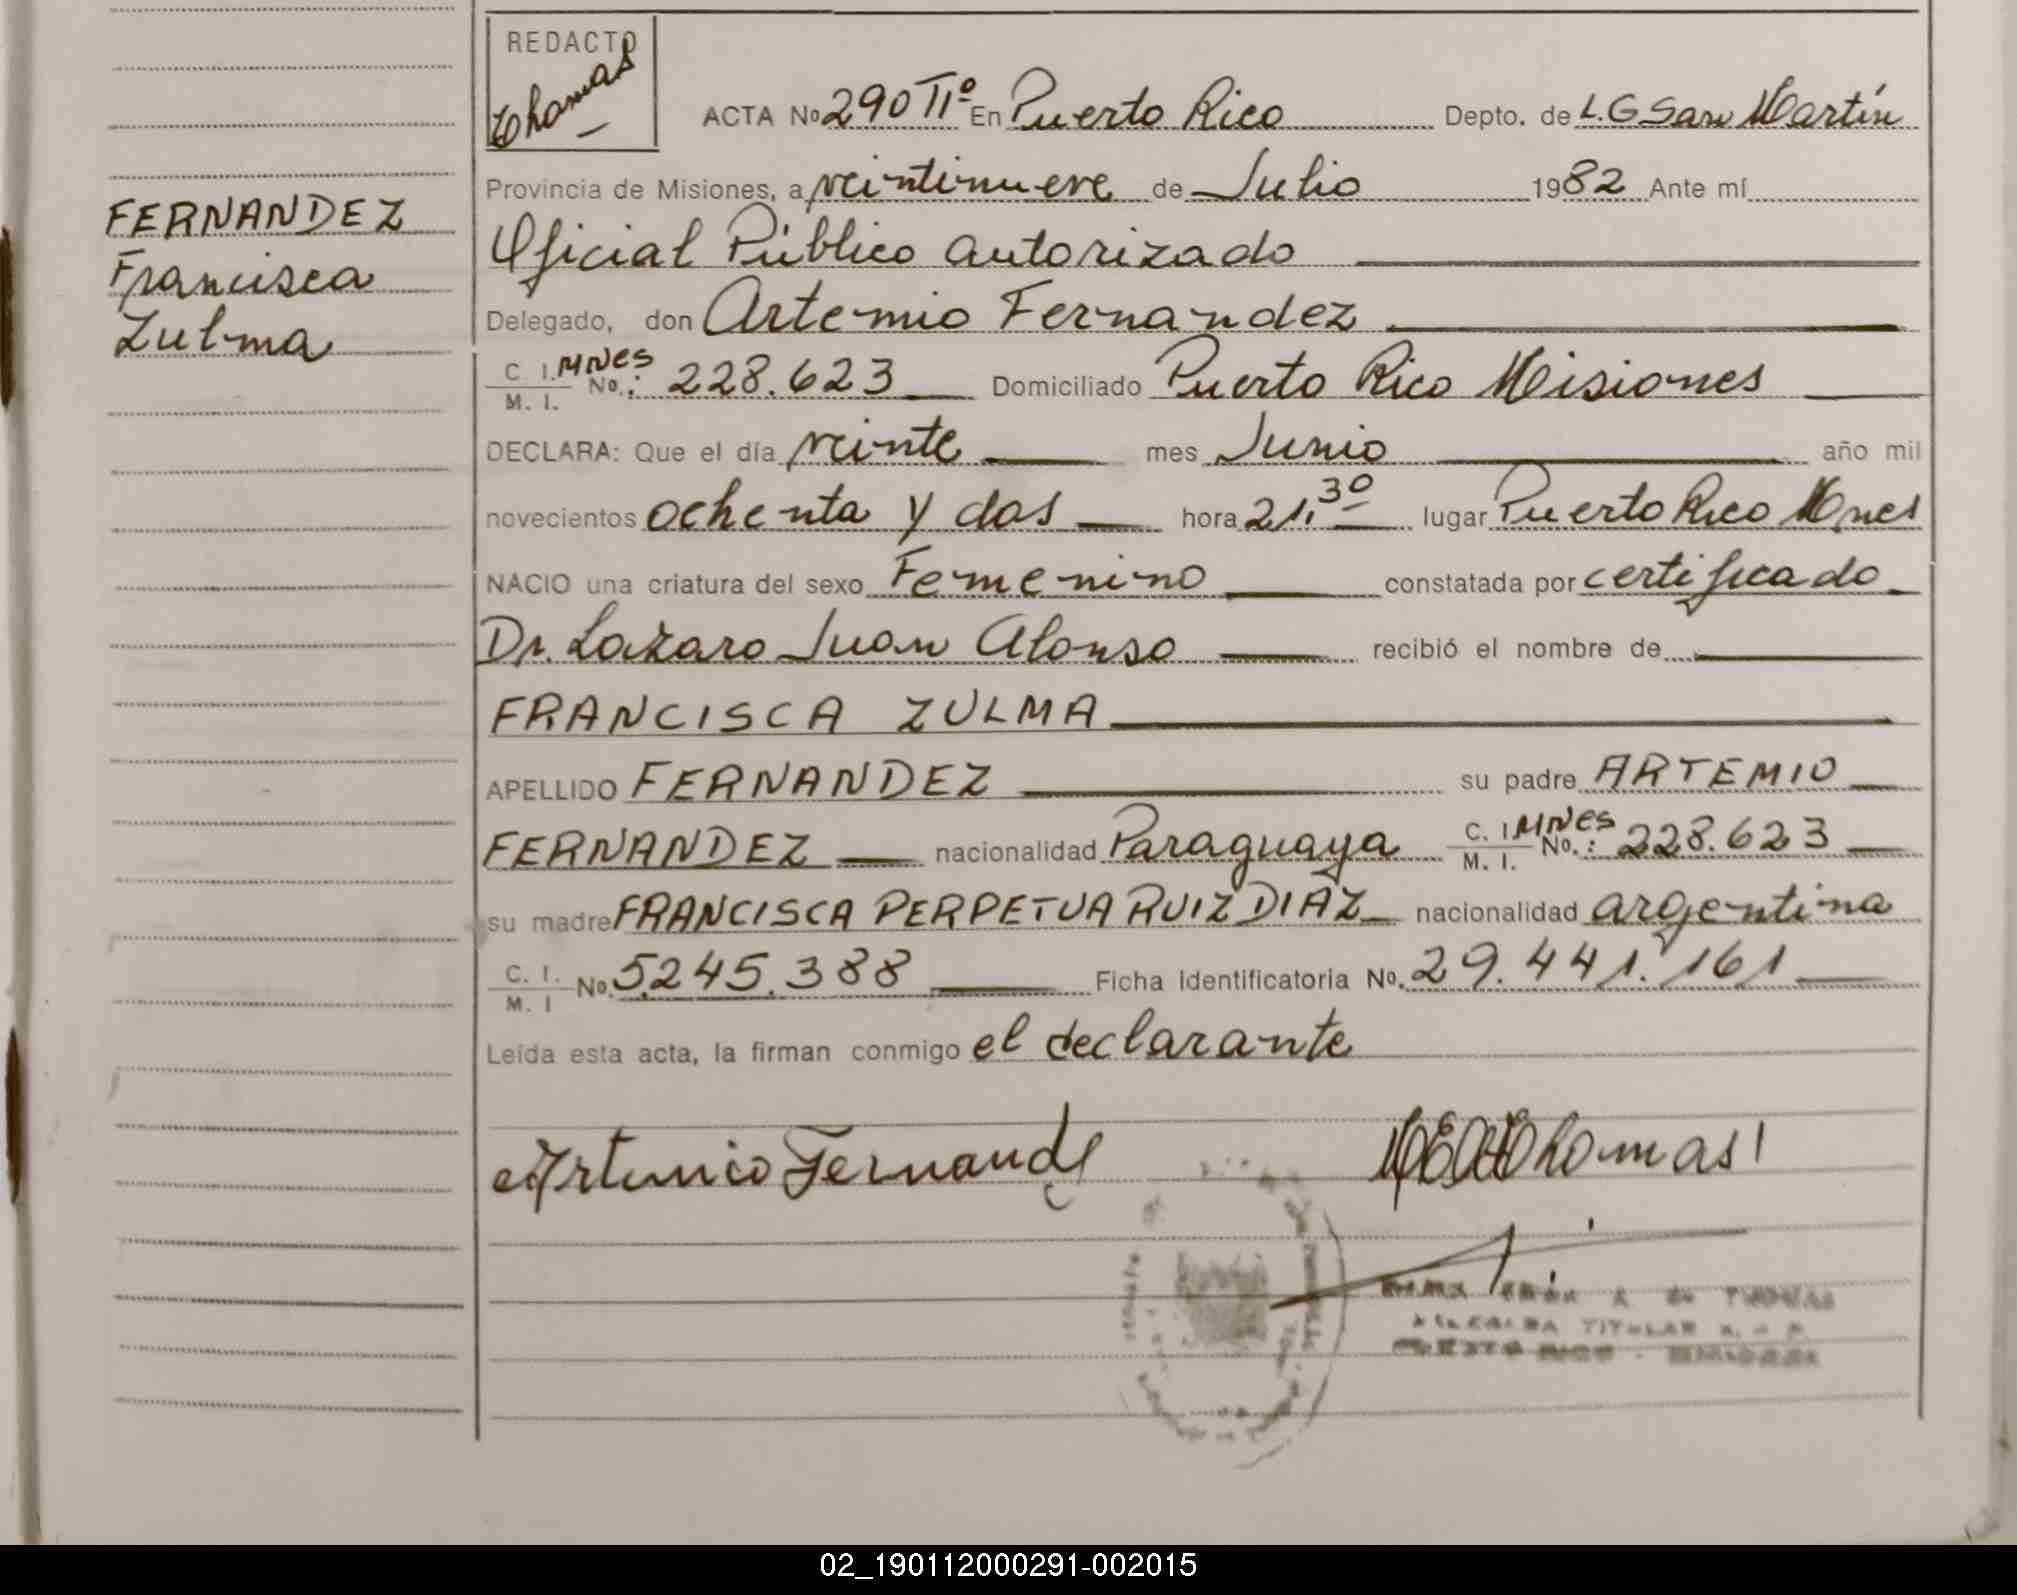 REDACTO
Thomas
ACTA No 290 TIº En Puerto Rico Depto. de L.G San Martín
Provincia de Misiones, a veintinueve de Julio 1982 Ante mí
Oficial Público autorizado
Delegado, don Artemio Fernandez
C. I. M. I. MNES No.: 228.623 Domiciliado Puerto Rico Misiones
DECLARA: Que el día veinte mes Junio año mil
novecientos ochenta y dos hora 21,30 lugar Puerto Rico Mnes
NACIO una criatura del sexo Femenino constatada por certificado
Dr. Lazaro Juan Alonso recibió el nombre de
FRANCISCA ZULMA
APELLIDO FERNANDEZ su padre ARTEMIO
FERNANDEZ nacionalidad Paraguaya C. I. M. I. MNES No.: 228.623
su madre FRANCISCA PERPETUA RUIZ DIAZ nacionalidad argentina
C. I. M. I No. 5.245.388 Ficha Identificatoria No. 29.441.161
Leída esta acta, la firman conmigo el declarante
Artemio Fernandez
Thomas
TITULAR
FERNANDEZ
Francisca
Zulma
02_190112000291-002015